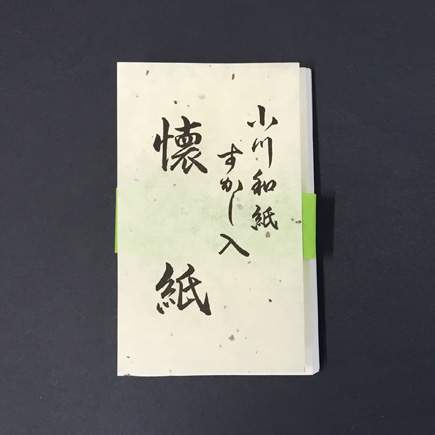 小川和紙
すかし入
懐紙